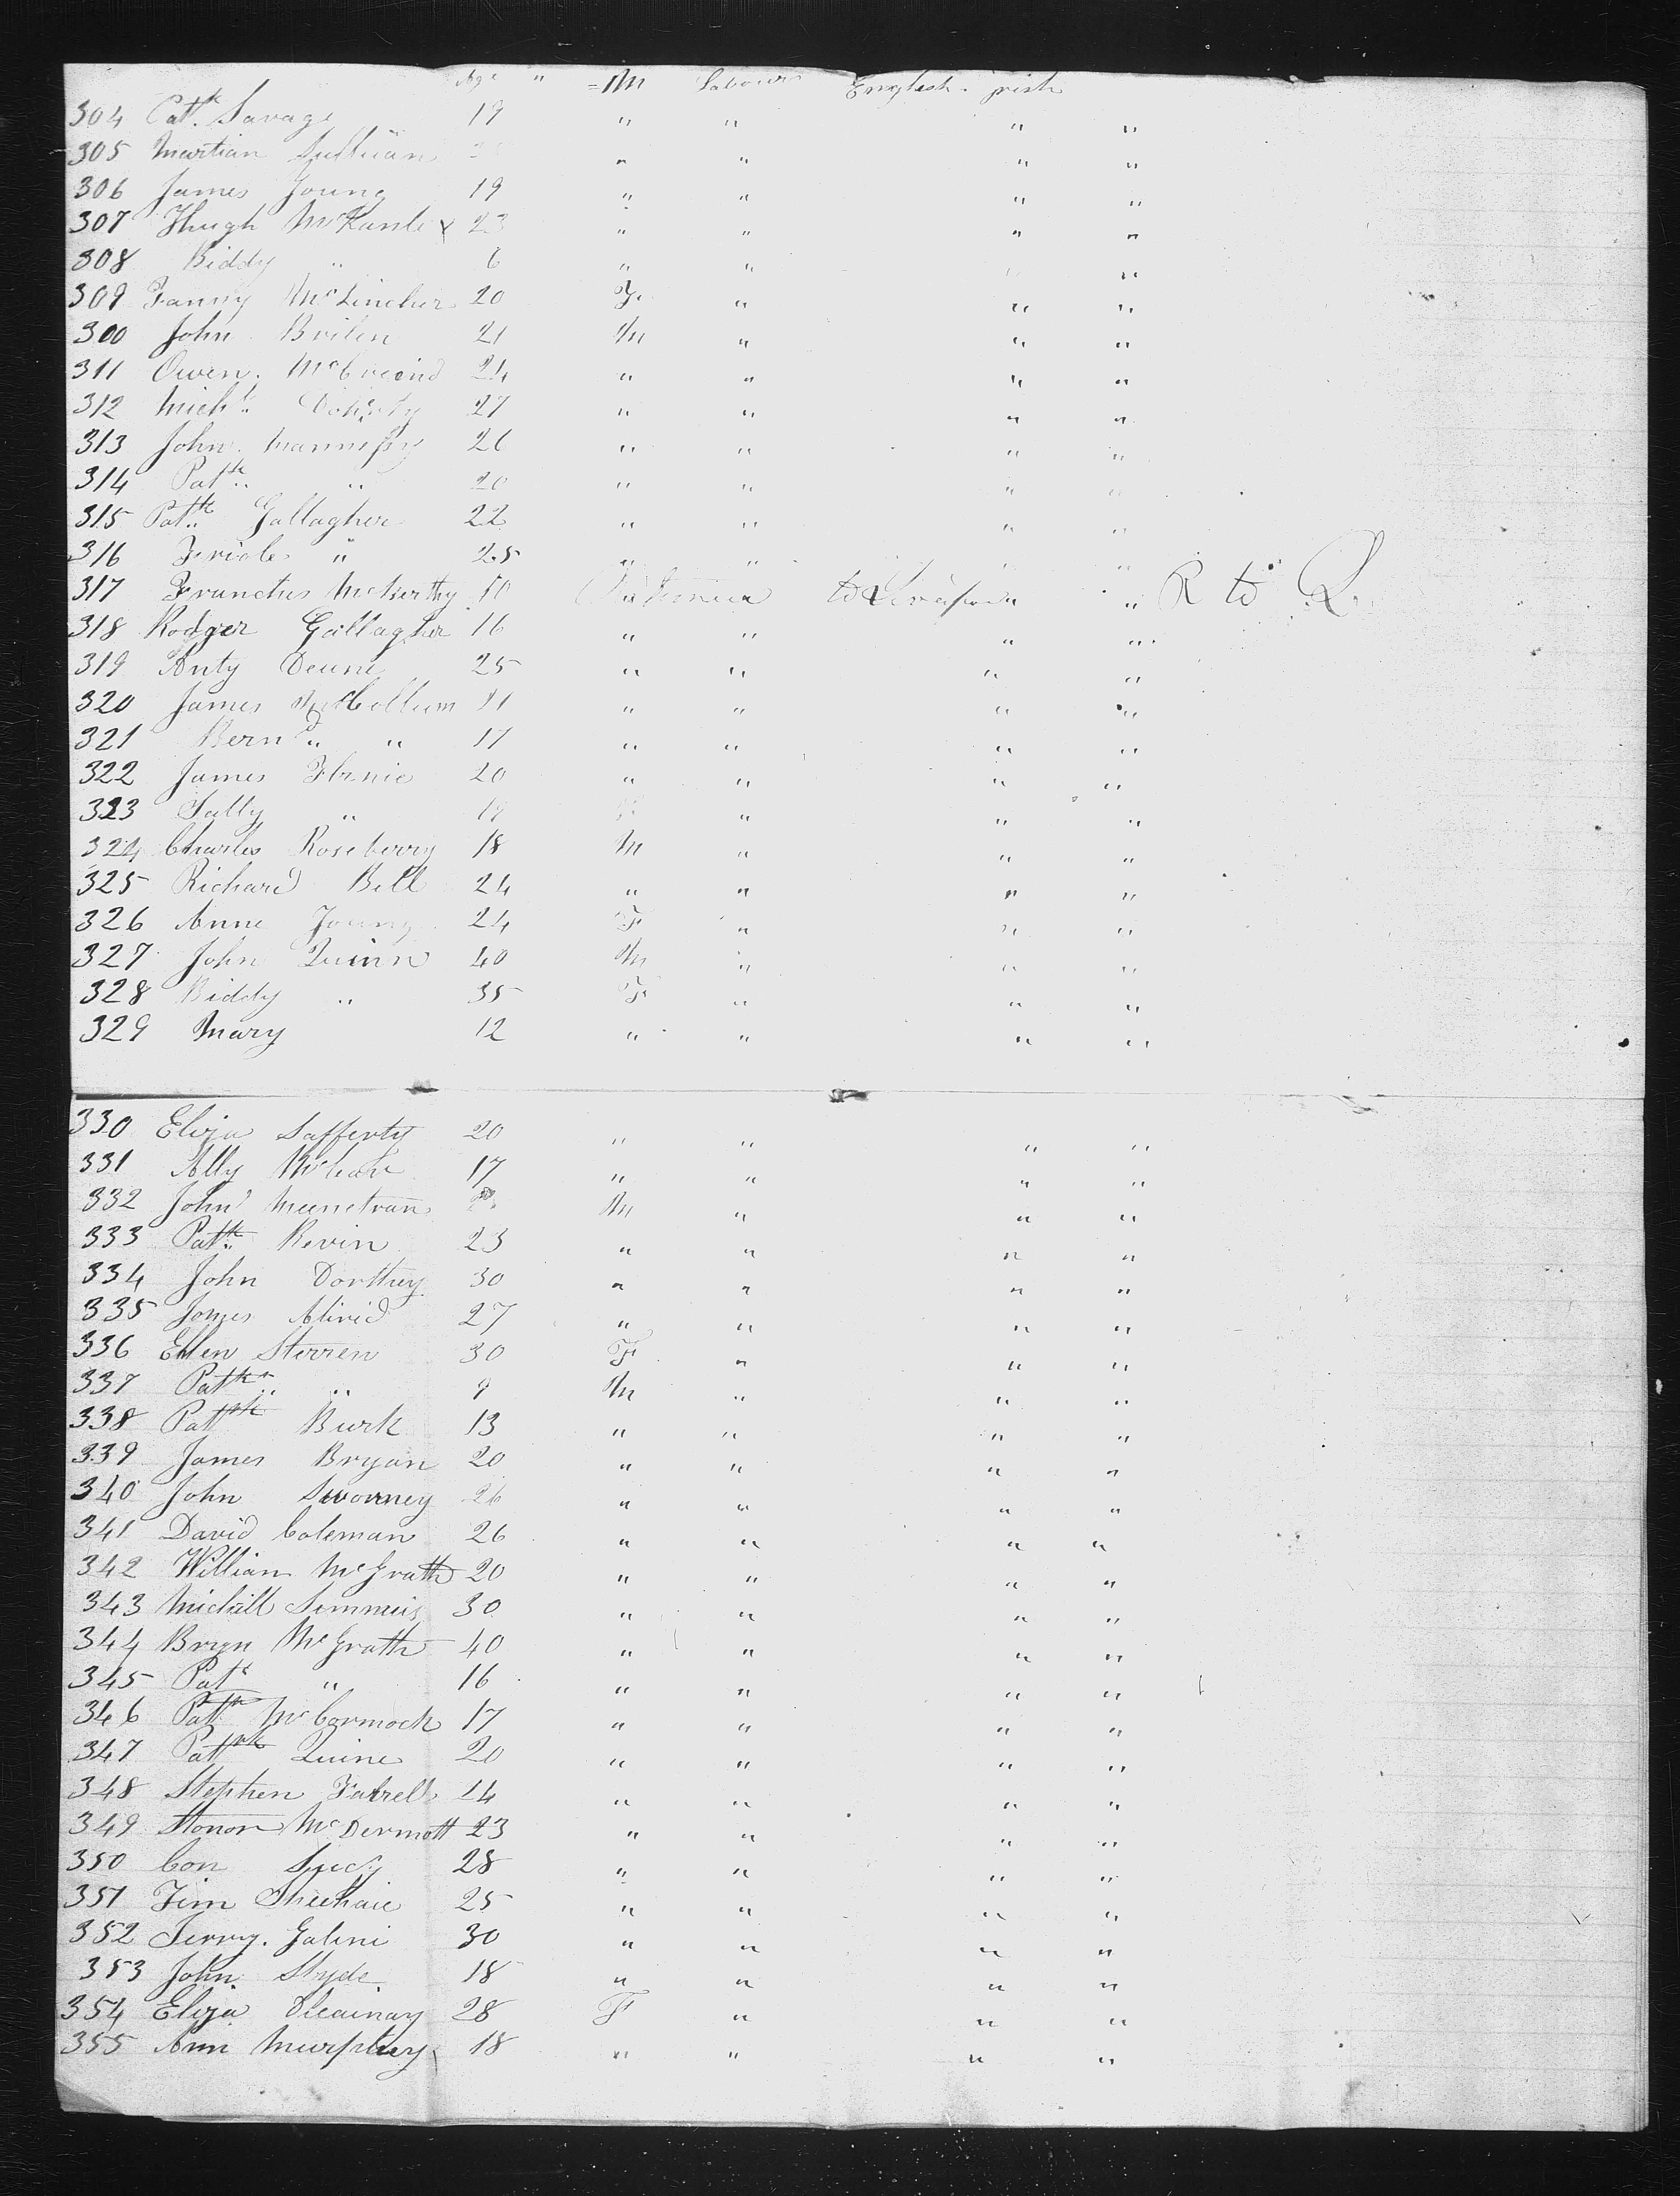 Age " = M Labour English Irish
304 Patk Savage 19 " " " "
305 Martian Sullivan " " " "
306 James Young 19 " " " "
307 Hugh McKanle 23 " " " "
308 Biddy " 6 " " " "
309 Fanny McLincher 20 F " " "
300 John Brilen 21 M " " "
311 Owen 24 " " " "
312 Michl Doherty 27 " " " "
313 John Mannessy 26 " " " "
314 Patk " 20 " " " "
315 Patk Gallagher 22 " " " "
316 " 25 " " " "
317 McKerthy 10 to " " R to L
318 Rodger Gallagher 16 " " " "
319 Anty Deune 25 " " " "
320 James McCollum 21 " " " "
321 Bernd " 17 " " " "
322 James 20 " " " "
323 Sally " 19 " " "
324 Charles Roseberry 18 M " " "
325 Richard Bell 24 " " " "
326 Anne Young 24 F " " "
327 John Quinn 40 M " " "
328 Biddy " 35 F " " "
329 Mary 12 " " " "
330 Eliza Lafferty 20 " " " "
331 Ally 17 " " " "
332 John M " " "
333 Patk Kevin 23 " " " "
334 John Dorthey 30 " " " "
335 James 27 " " " "
336 Ellen Sterren 30 F " " "
337 Patk " 9 M " " "
338 Patrk Burk 13 " " " "
339 James Bryan 20 " " " "
340 John Sworney 26 " " " "
341 David Coleman 26 " " " "
342 William McGrath 20 " " " "
343 Michall Simmuis 30 " " " "
344 Bryn McGrath 40 " " " "
345 Patk " 16 " " " "
346 Patk McCormock 17 " " " "
347 Patrk Quine 20 " " " "
348 Stephen Fatrell 14 " " " "
349 Honor McDermott 23 " " " "
350 Con 28 " " " "
351 Tim 25 " " " "
352 Jerry Galini 30 " " " "
353 John Slyde 18 " " " "
354 Eliza 28 F " " "
355 Ann Murphey 18 " " " "